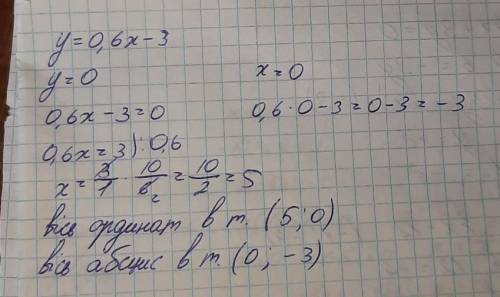 y=0,6x-3
y=0 x=0
0,6x-3=0 0,6·0-3=0-3=-3
0,6x=3):0,6
x=3/1·10/6₂=10/2=5
вісь ординат в т. (5;0)
вісь абсцис в т. (0;-3)